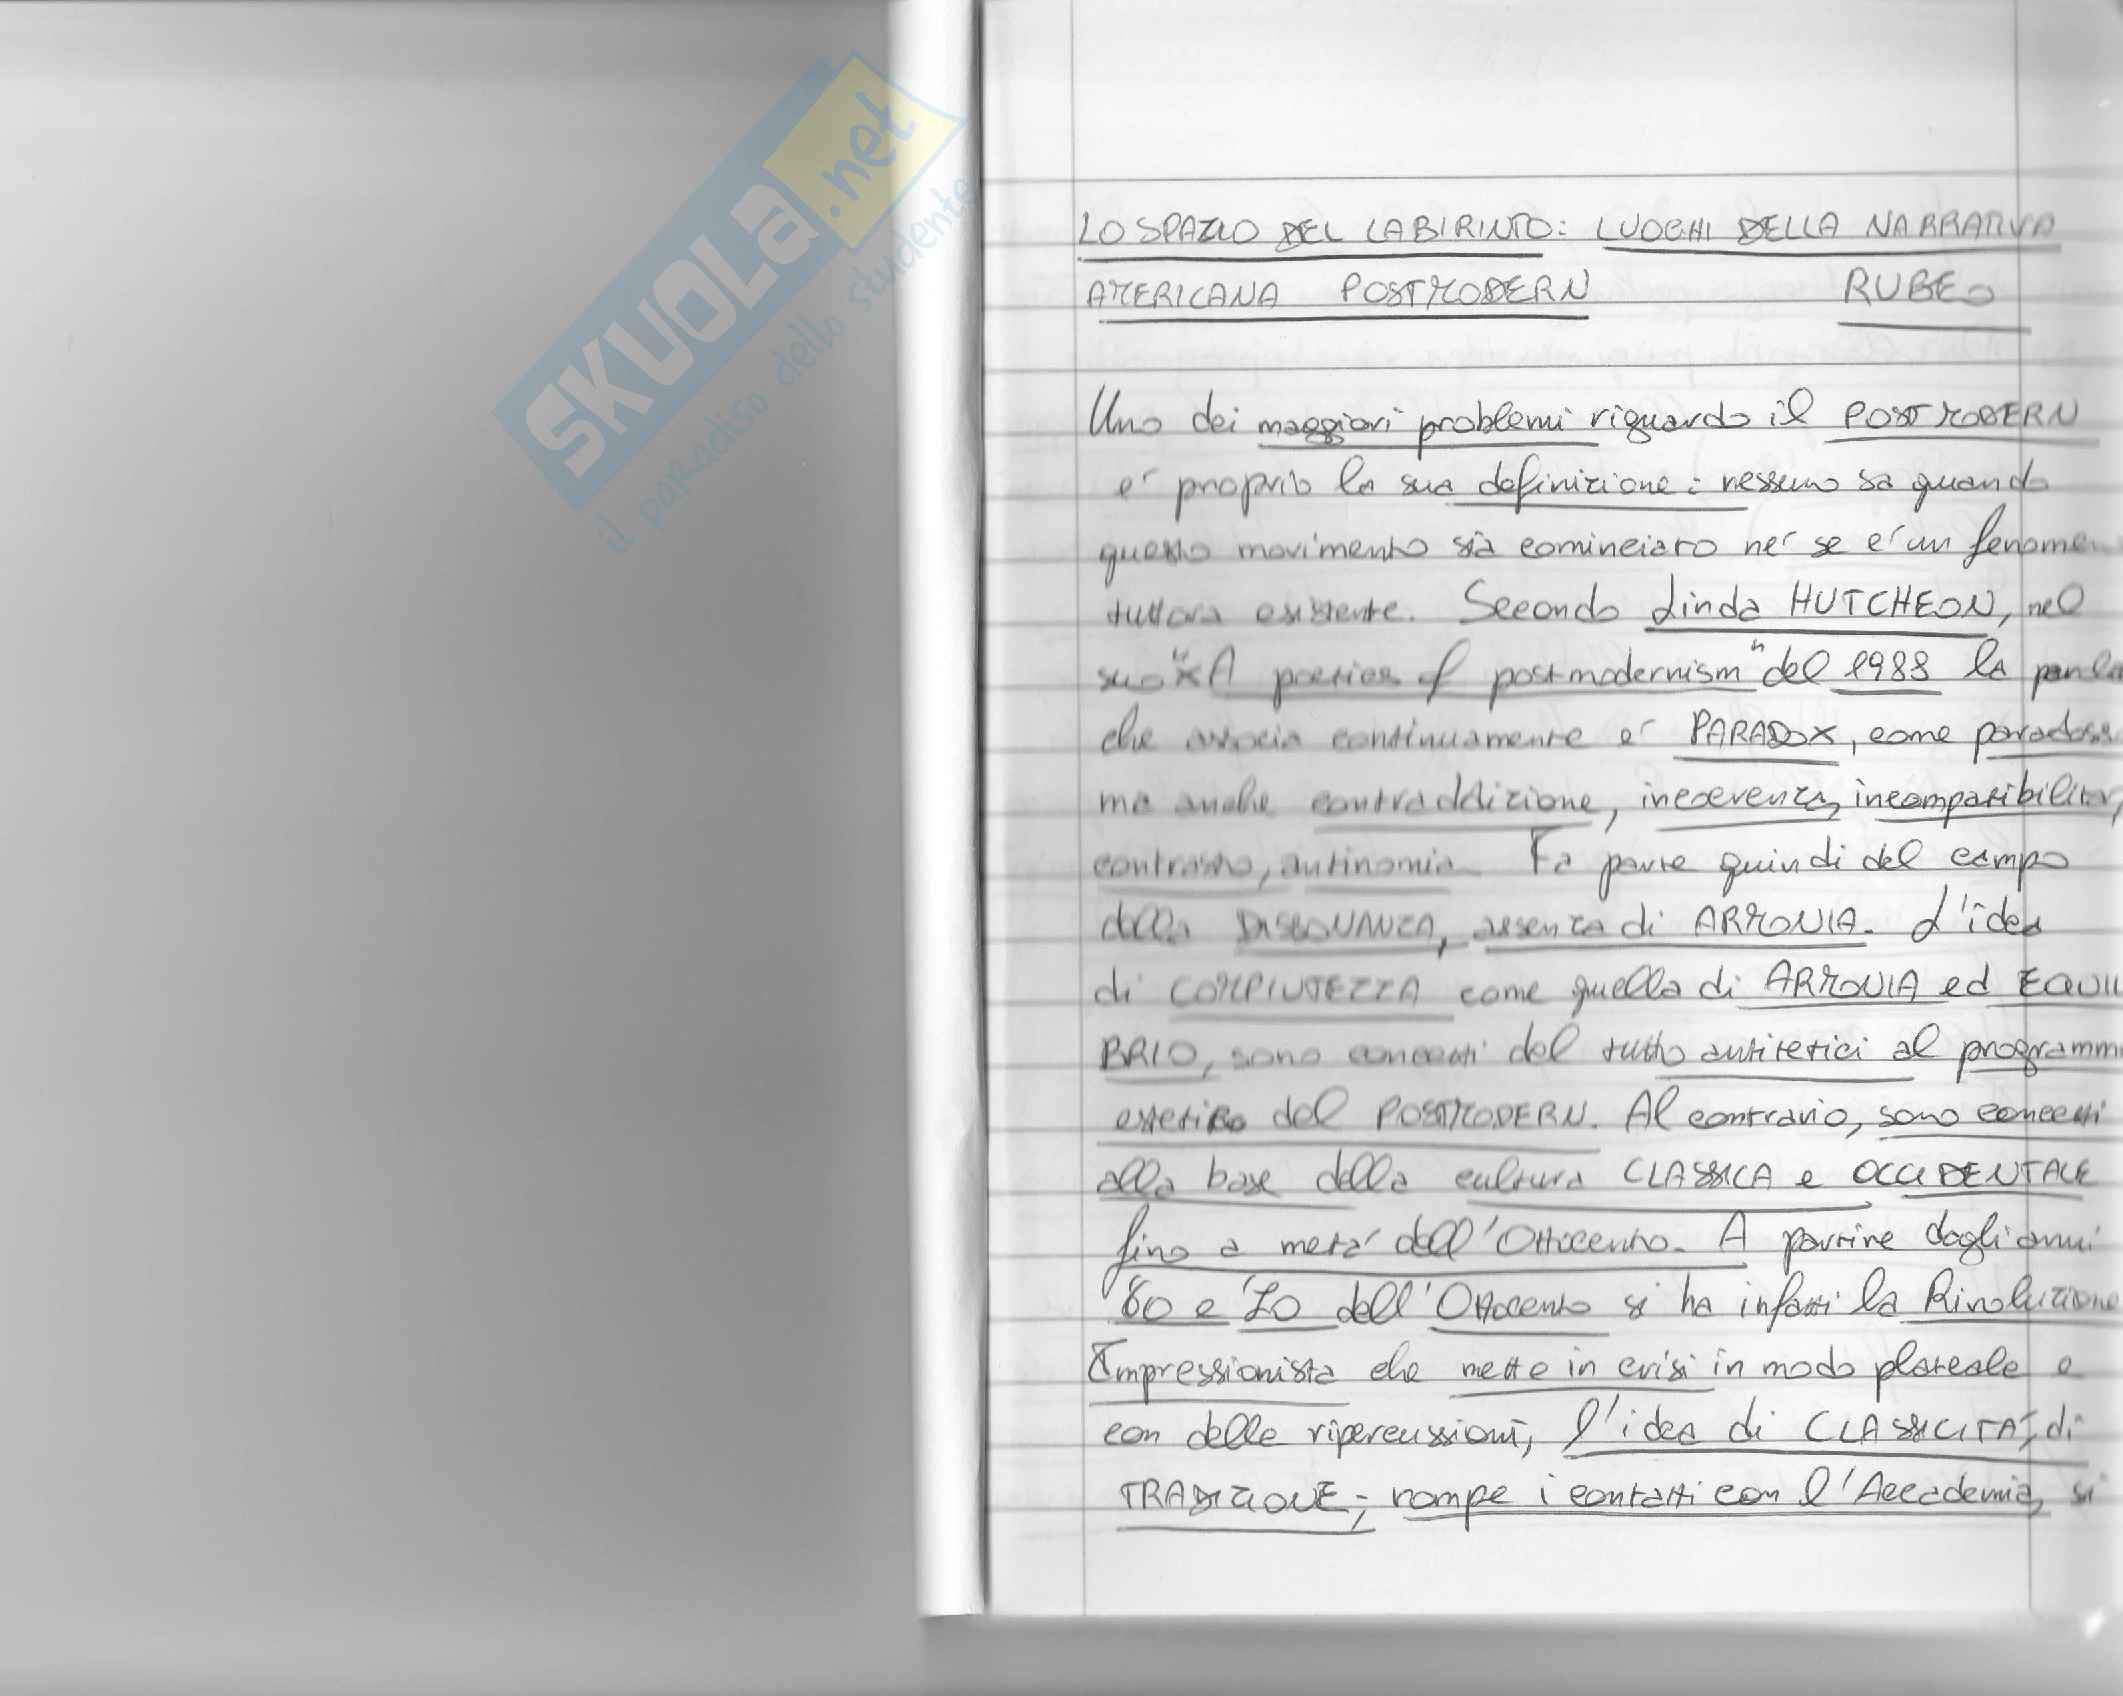 SKUOLA.net
il paradiso dello studente
LO SPAZIO DEL LABIRINTO: LUOGHI DELLA NARRATIVA
AMERICANA POSTMODERN RUBEO
Uno dei maggiori problemi riguardo il POSTMODERN
e' proprio la sua definizione: nessuno sa quando
questo movimento sia cominciato ne' se e' un fenomen
tuttora esistente. Secondo Linda HUTCHEON, nel
suo "A poetics of postmodernism" del 1988 la parola
che associa continuamente e' PARADOX, come paradoss
ma anche contraddizione, incoerenza, incompatibilita',
contrasto, antinomia. Fa parte quindi del campo
della DISSONANZA, assenza di ARMONIA. L'idea
di COMPIUTEZZA come quella di ARMONIA ed EQUILI
BRIO, sono concetti del tutto antitetici al programm
estetico del POSTMODERN. Al contrario, sono concetti
alla base della cultura CLASSICA e OCCIDENTALE
fino a meta' dell'Ottocento. A partire dagli anni
'60 e '70 dell'Ottocento si ha infatti la Rivoluzione
Impressionista che mette in crisi in modo plateale e
con delle ripercussioni, l'idea di CLASSICITA', di
TRADIZIONE; rompe i contatti con l'Accademia, si